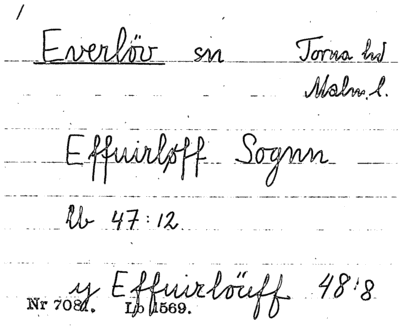 Everlöv sn Torna hd
Malm. l.
Effuirløff Sognn
Lb 47:12
y Effuirlöuff 48:8
Nr 7081. Lp 1569.